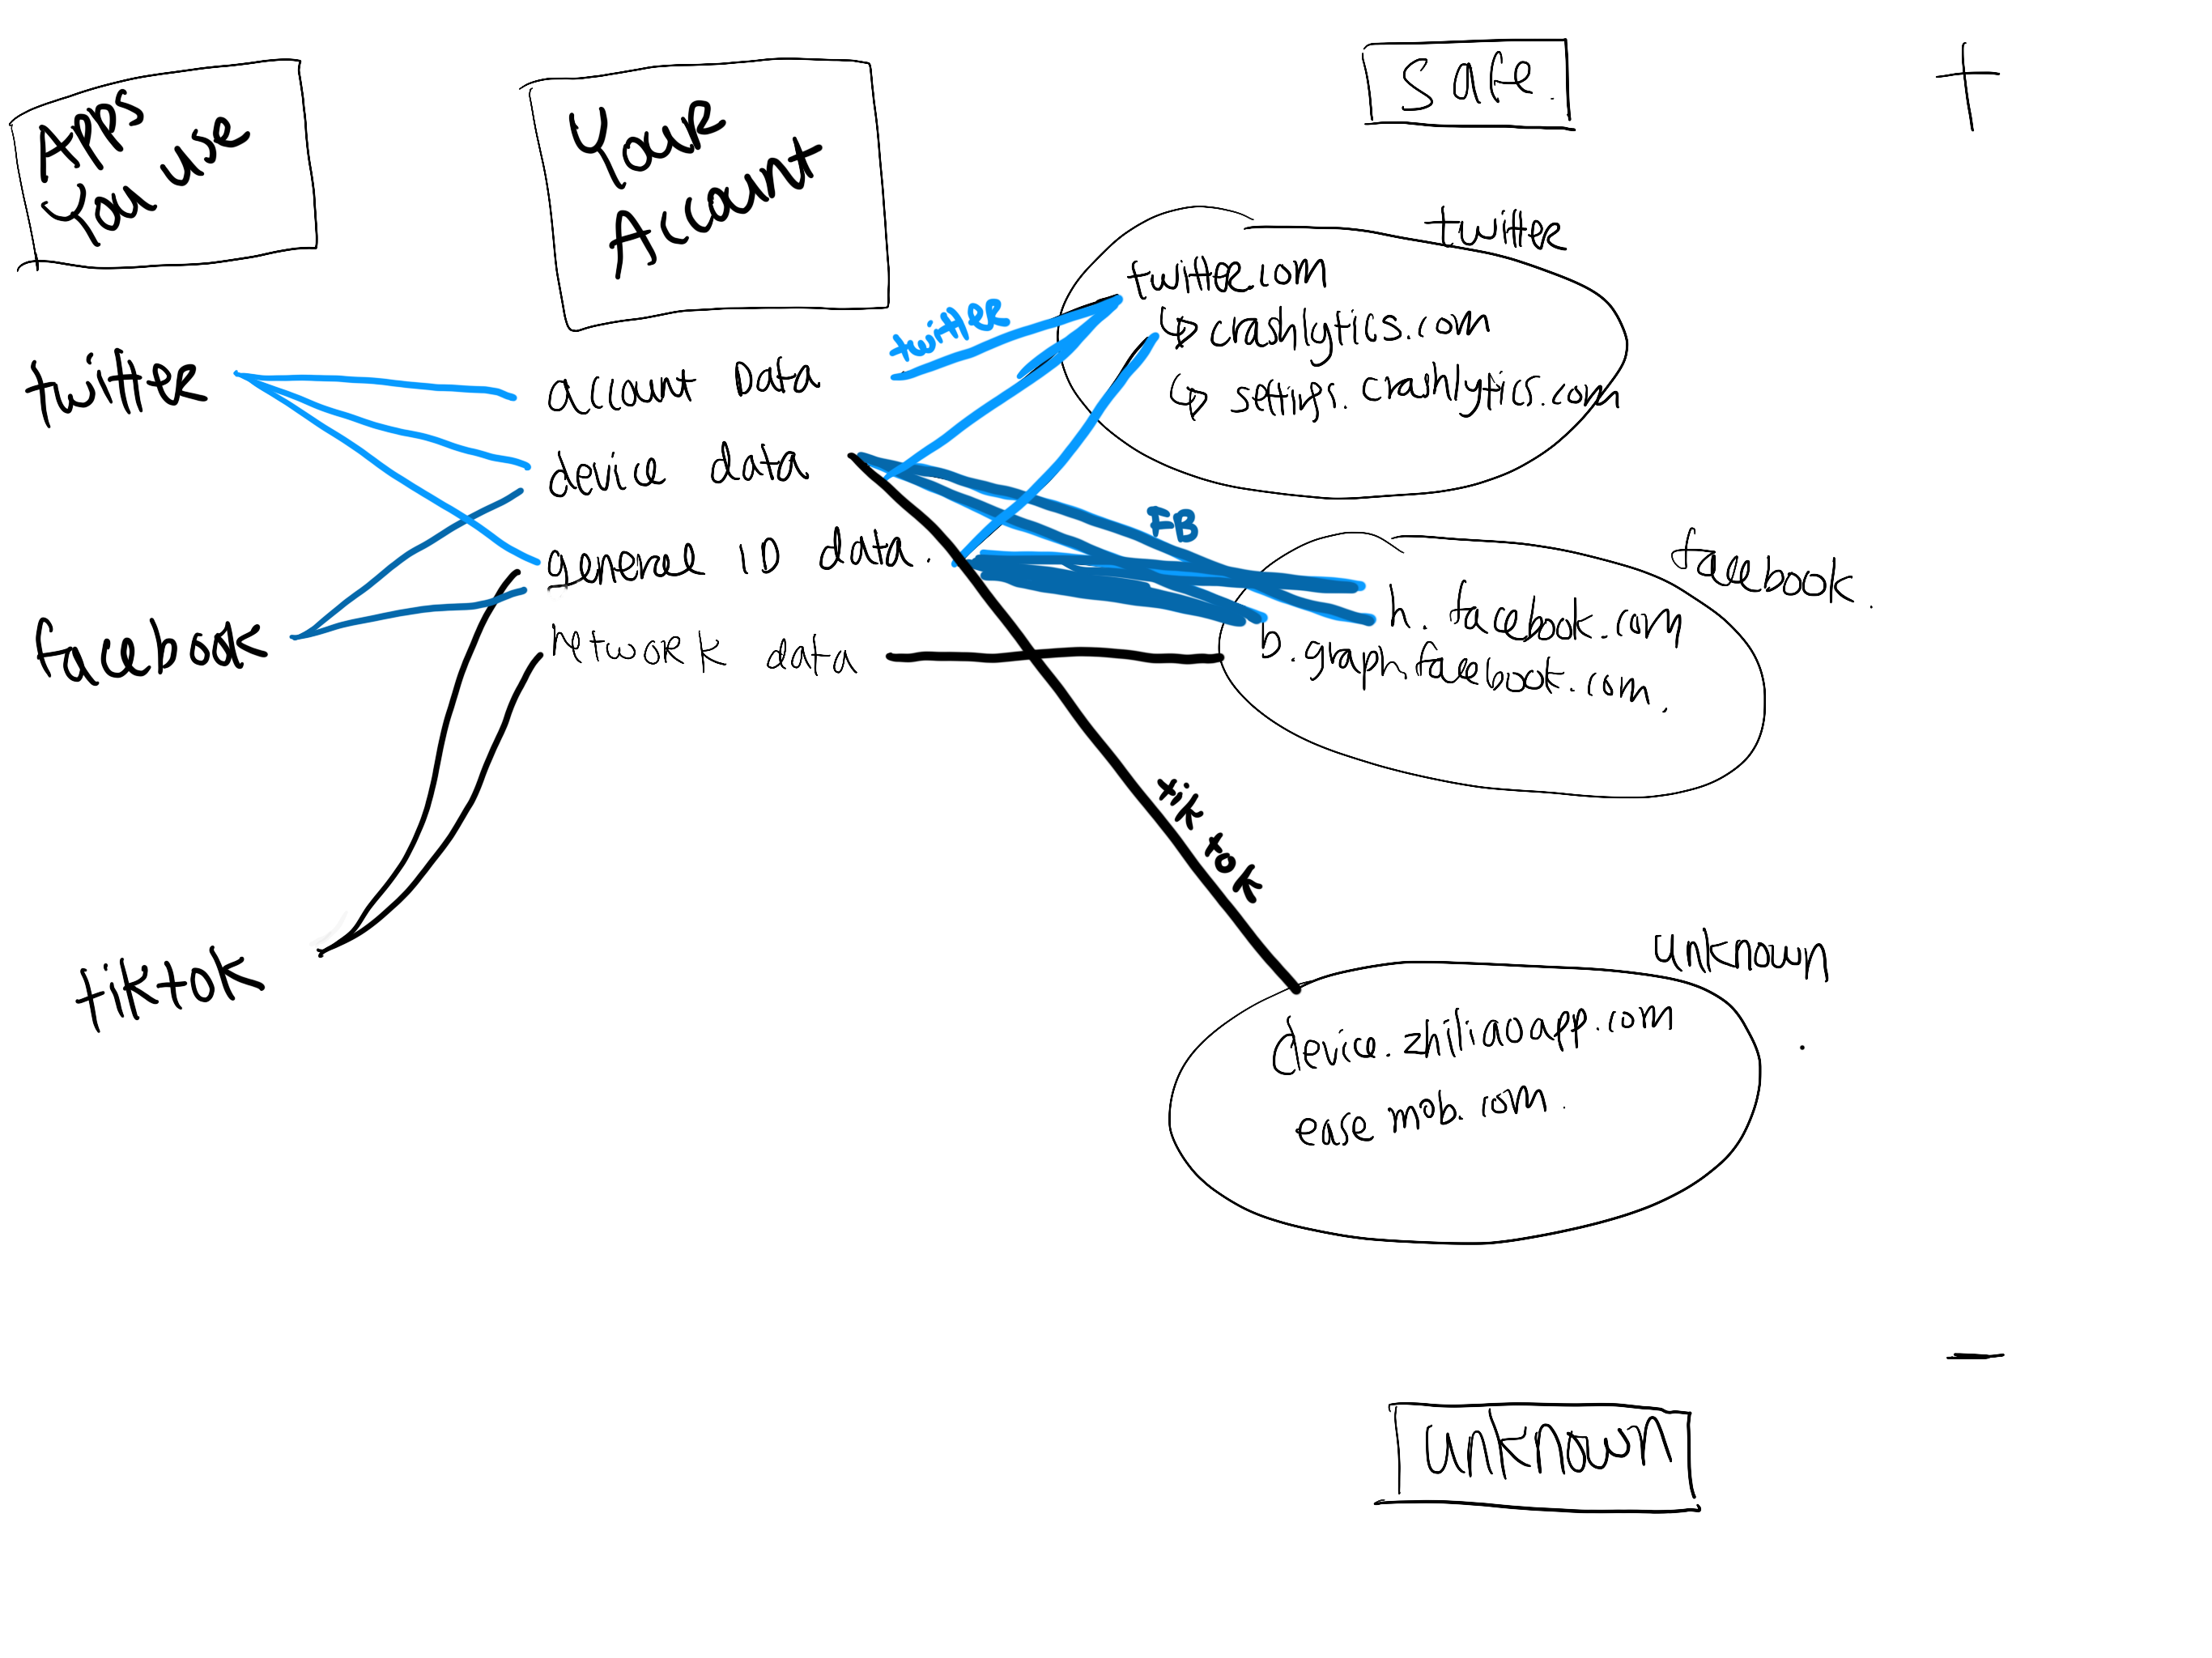 Apps
You use
Your
Account
safe.
+
twitter
account Data
device data
general ID data.
network data
facebook
tiktok
twitter
FB
tik tok
twitter
twitter.com
↳ crashlytics.com
↳ settings.crashlytics.com
facebook.
h.facebook.com
b.graph.facebook.com.
unknown
device.zhiliaoapp.com
easemob.com.
-
unknown